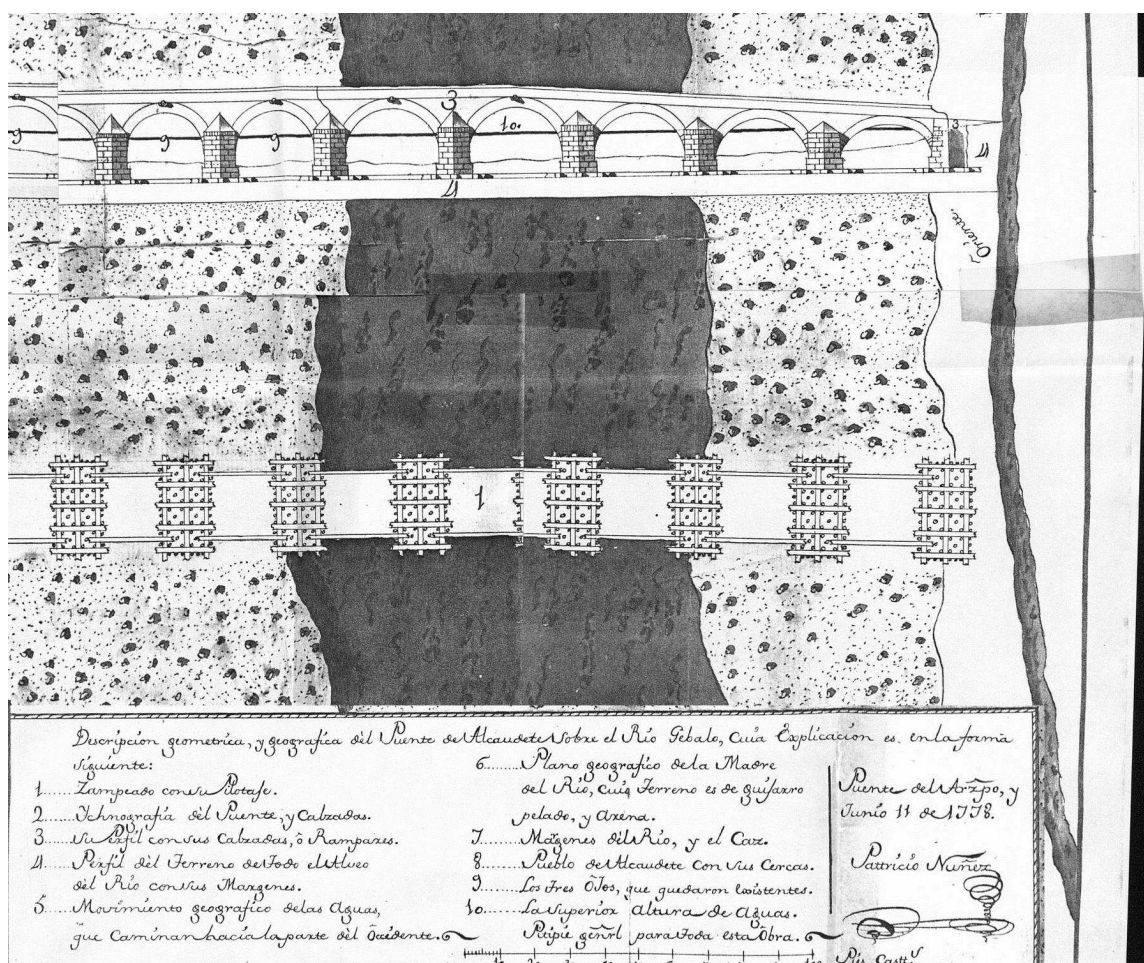 3
10.
9
9
9
3
4
4
Oriente.
1
Descripcion geometrica, y geografica dèl Puente de Alcaudete Sobre el Rio Gébalo, Cuia Explicacion es en la forma
siguiente:
1.... Zampeado con su Pilotage.
2..... Ychnografia dèl Puente, y Calzadas.
3..... Su Perfil con sus Calzadas, ô Rampaxes.
4..... Perfil dèl Terreno de todo el Alveo
dèl Rio con sus Margenes.
5..... Movimiento geografico de las Aguas,
que Caminan hacia la parte dèl Occidente.
6....... Plano geografico de la Madre
del Rio, Cuia Terreno es de guijarro
pelado, y arena.
7....... Márgenes dèl Rio, y el Caz.
8....... Pueblo de Alcaudete Con sus Cercas.
9....... Los tres Ojos, que quedaron Existentes.
10....... La Superior altura de Aguas.
Pitipie genrl para toda esta Obra.
Puente del Arzpo, y
Junio 11 de 1778.
Pattricio Nuñez
Pies Castt.s